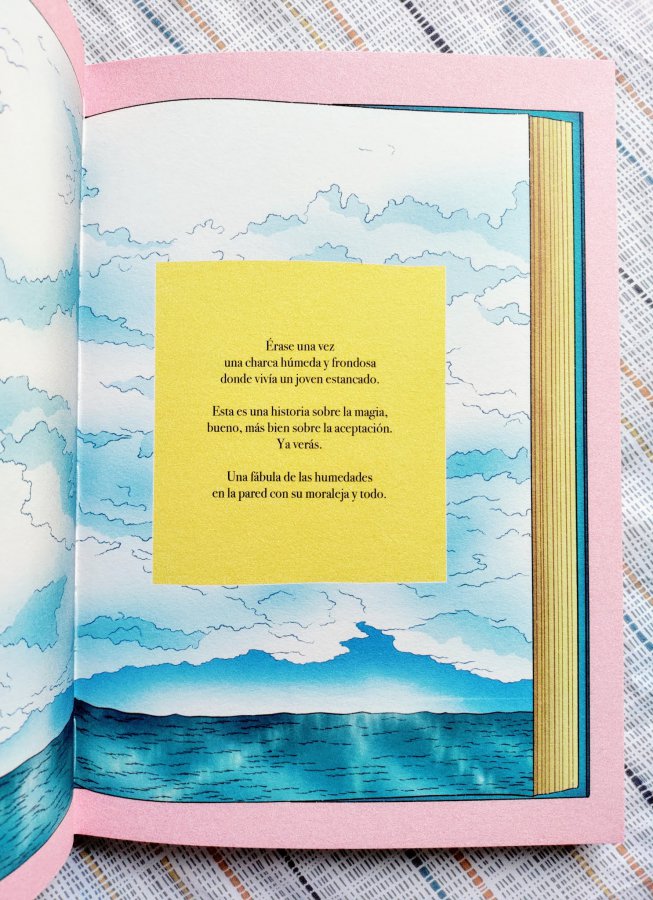 Érase una vez
una charca húmeda y frondosa
donde vivía un joven estancado.
Esta es una historia sobre la magia,
bueno, más bien sobre la aceptación.
Ya verás.
Una fábula de las humedades
en la pared con su moraleja y todo.